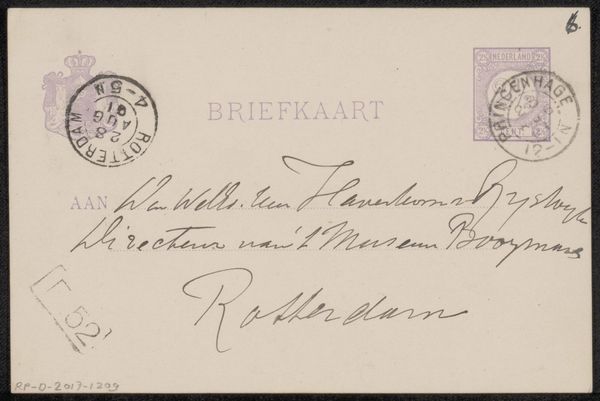 6.
NEDERLAND
2½ 2½
2½ CENT 2½
PRINCENHAGE
12-1N
ROTTERDAM
28
AUG
91
4-5N
BRIEFKAART
AAN Den WelEd. Heer Haverkorn v Rijsewijk
Directeur van 't Museum Booymans
Rotterdam
F 52
RP-D-2017-1209